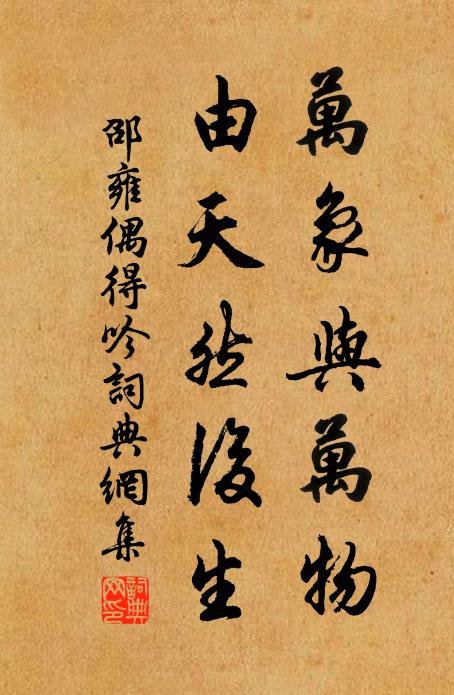 萬象與萬物
由天然後生
邵雍偶得吟詞典網集
詞典網印